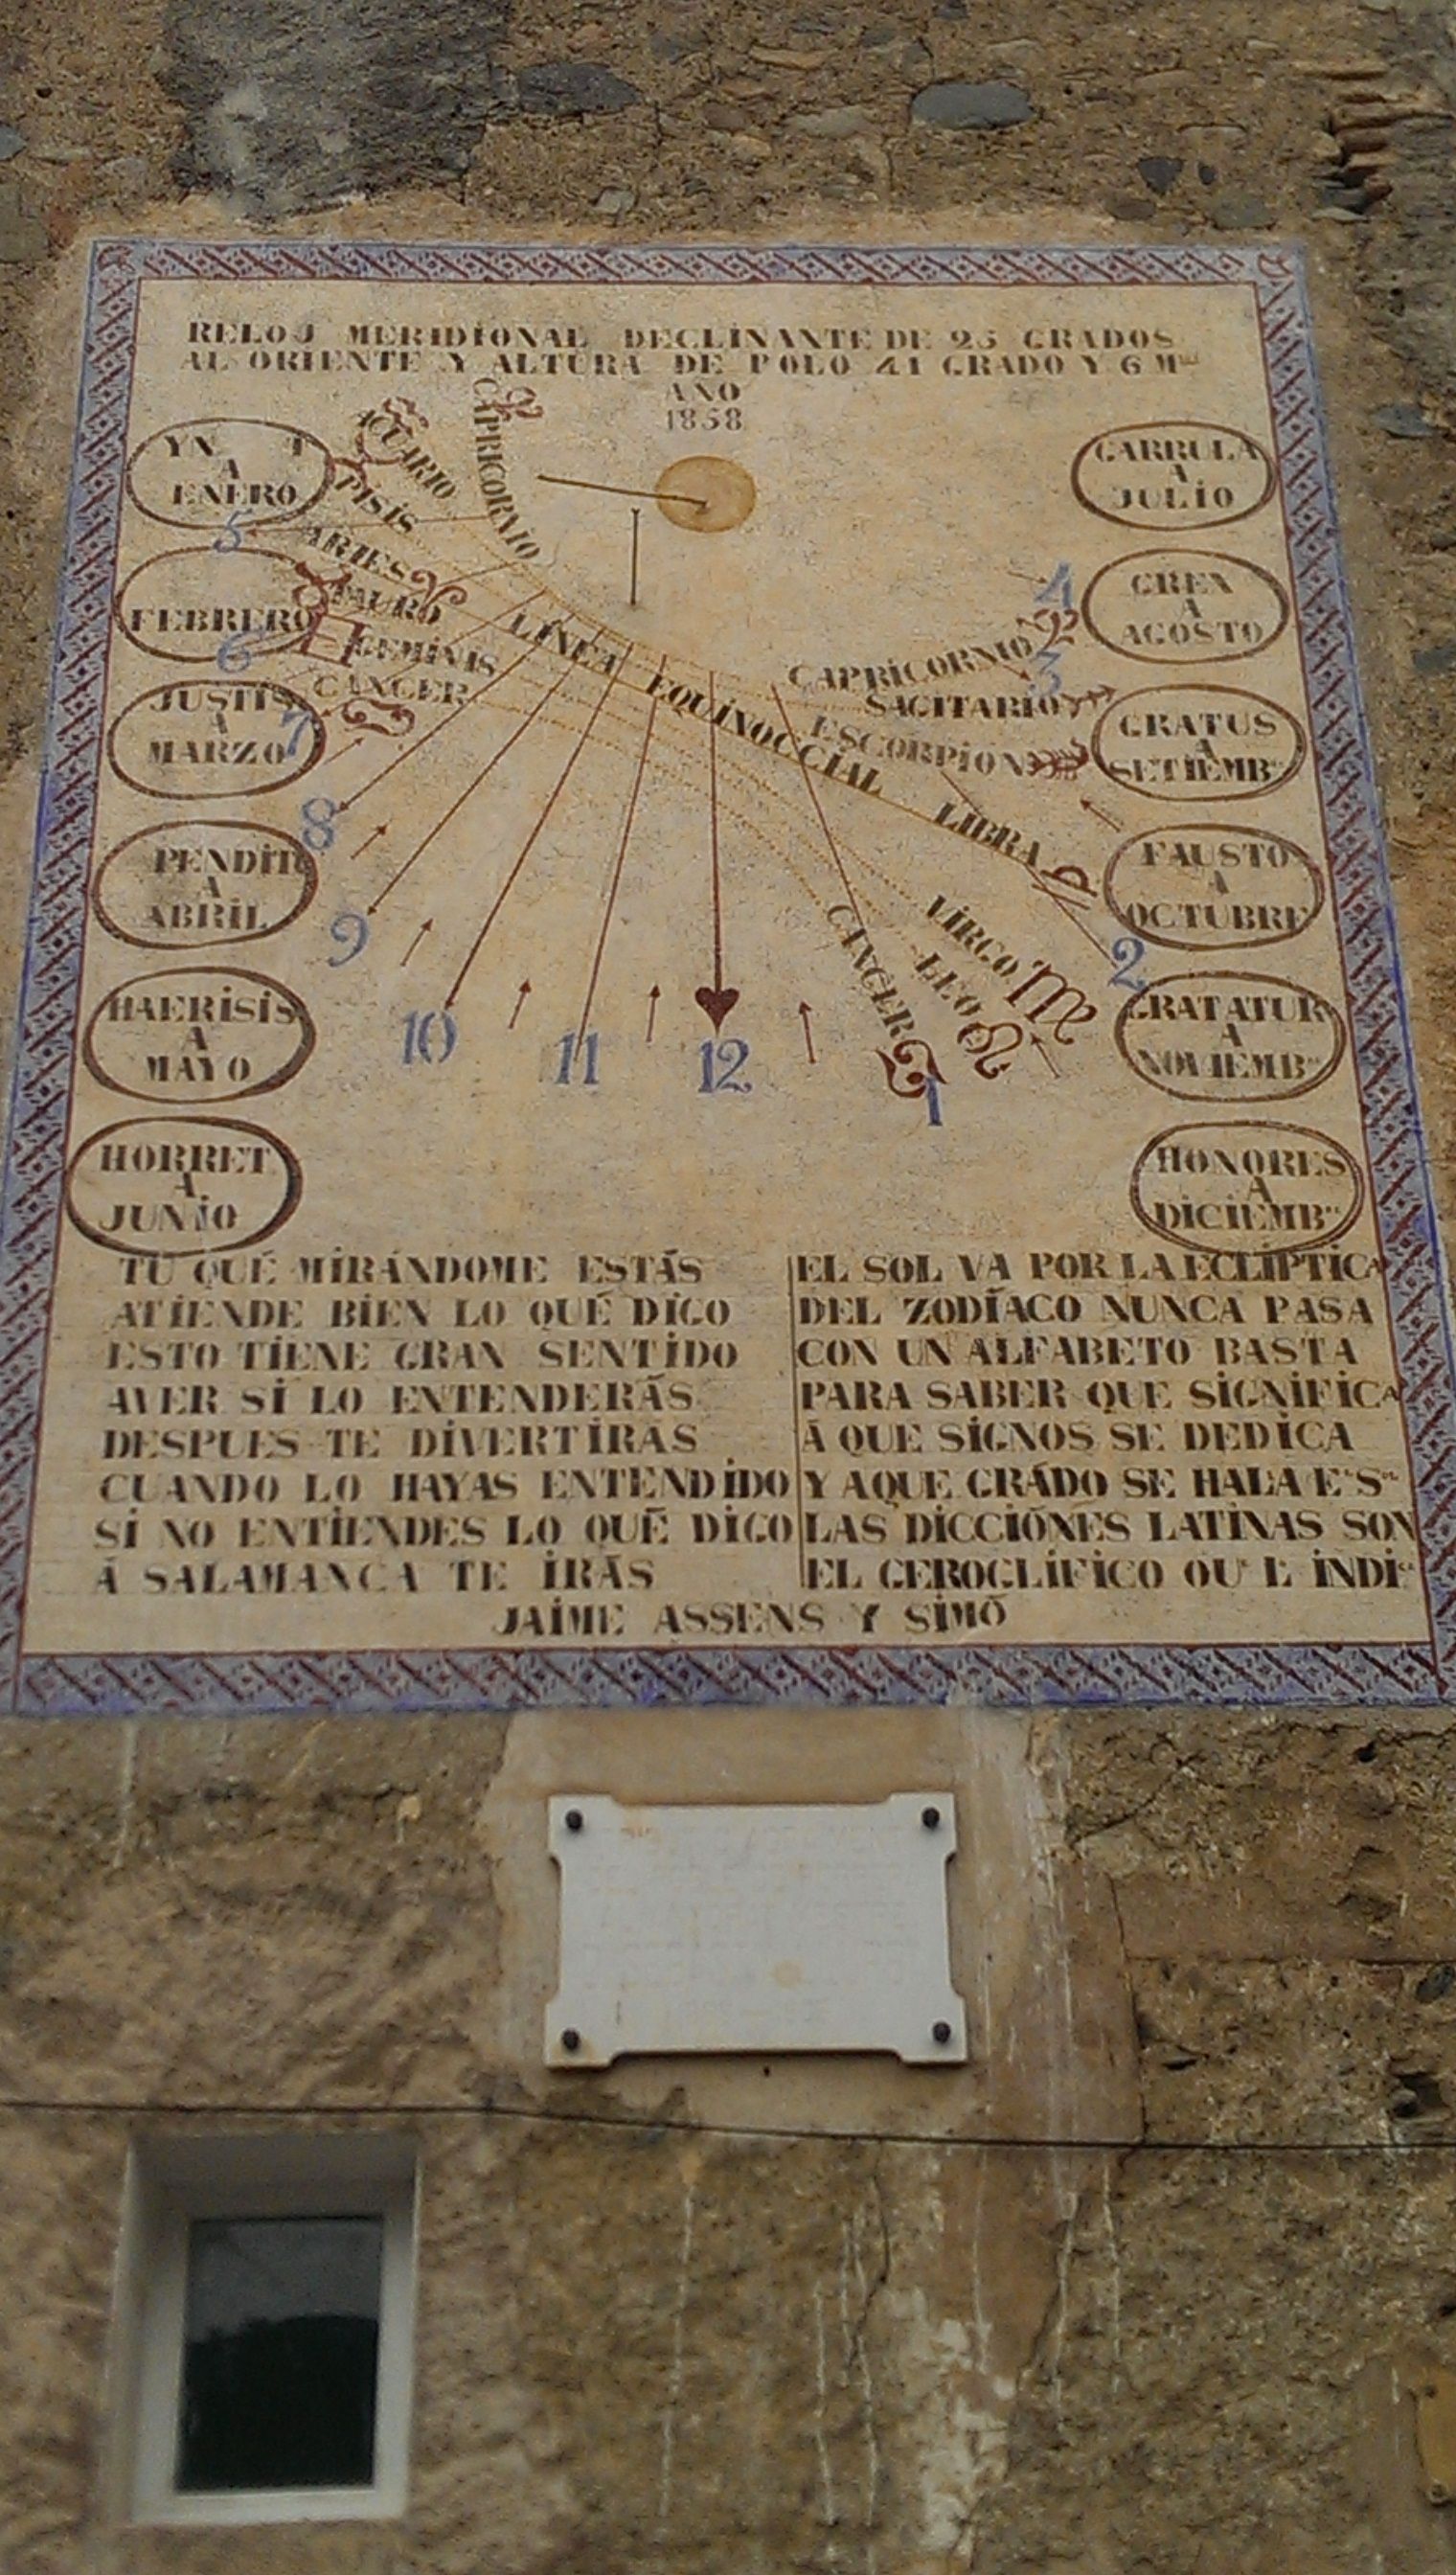 RELOJ MERIDIONAL DECLINANTE DE 25 GRADOS
AL ORIENTE Y ALTURA DE POLO 41 GRADO Y 6 M
AÑO
1858
YN
A
ENERO
FEBRERO
JUSTIS
A
MARZO
PENDIT
A
ABRIL
HAERISIS
A
MAYO
HORRET
A
JUNIO
CAPRICORNIO
ACUARIO
PISIS
ARIES
TAURO
GEMINIS
CANCER
5
6
7
8
9
10
11
12
1
2
3
4
LINEA EQUINOCCIAL
CAPRICORNIO
SAGITARIO
ESCORPION
LIBRA
VIRGO
LEO
CANCER
GARRULA
A
JULIO
GREX
A
AGOSTO
GRATUS
A
SETIEMB
FAUSTO
A
OCTUBRE
GRATATUR
A
NOVIEMB
HONORES
A
DICIEMB
TU QUÉ MIRÁNDOME ESTÁS
ATIENDE BIEN LO QUÉ DIGO
ESTO TIENE GRAN SENTIDO
AVER SI LO ENTENDERÁS
DESPUES TE DIVERTIRAS
CUANDO LO HAYAS ENTENDIDO
SI NO ENTIENDES LO QUÉ DIGO
Á SALAMANCA TE IRÁS
EL SOL VA POR LA ECLÍPTICA
DEL ZODÍACO NUNCA PASA
CON UN ALFABETO BASTA
PARA SABER QUE SIGNIFICA
Á QUE SIGNOS SE DEDICA
Y AQUE GRÁDO SE HALLA E S
LAS DICCIÓNES LATINAS SON
EL GEROGLÍFICO QU L INDI
JAIME ASSENS Y SIMÓ